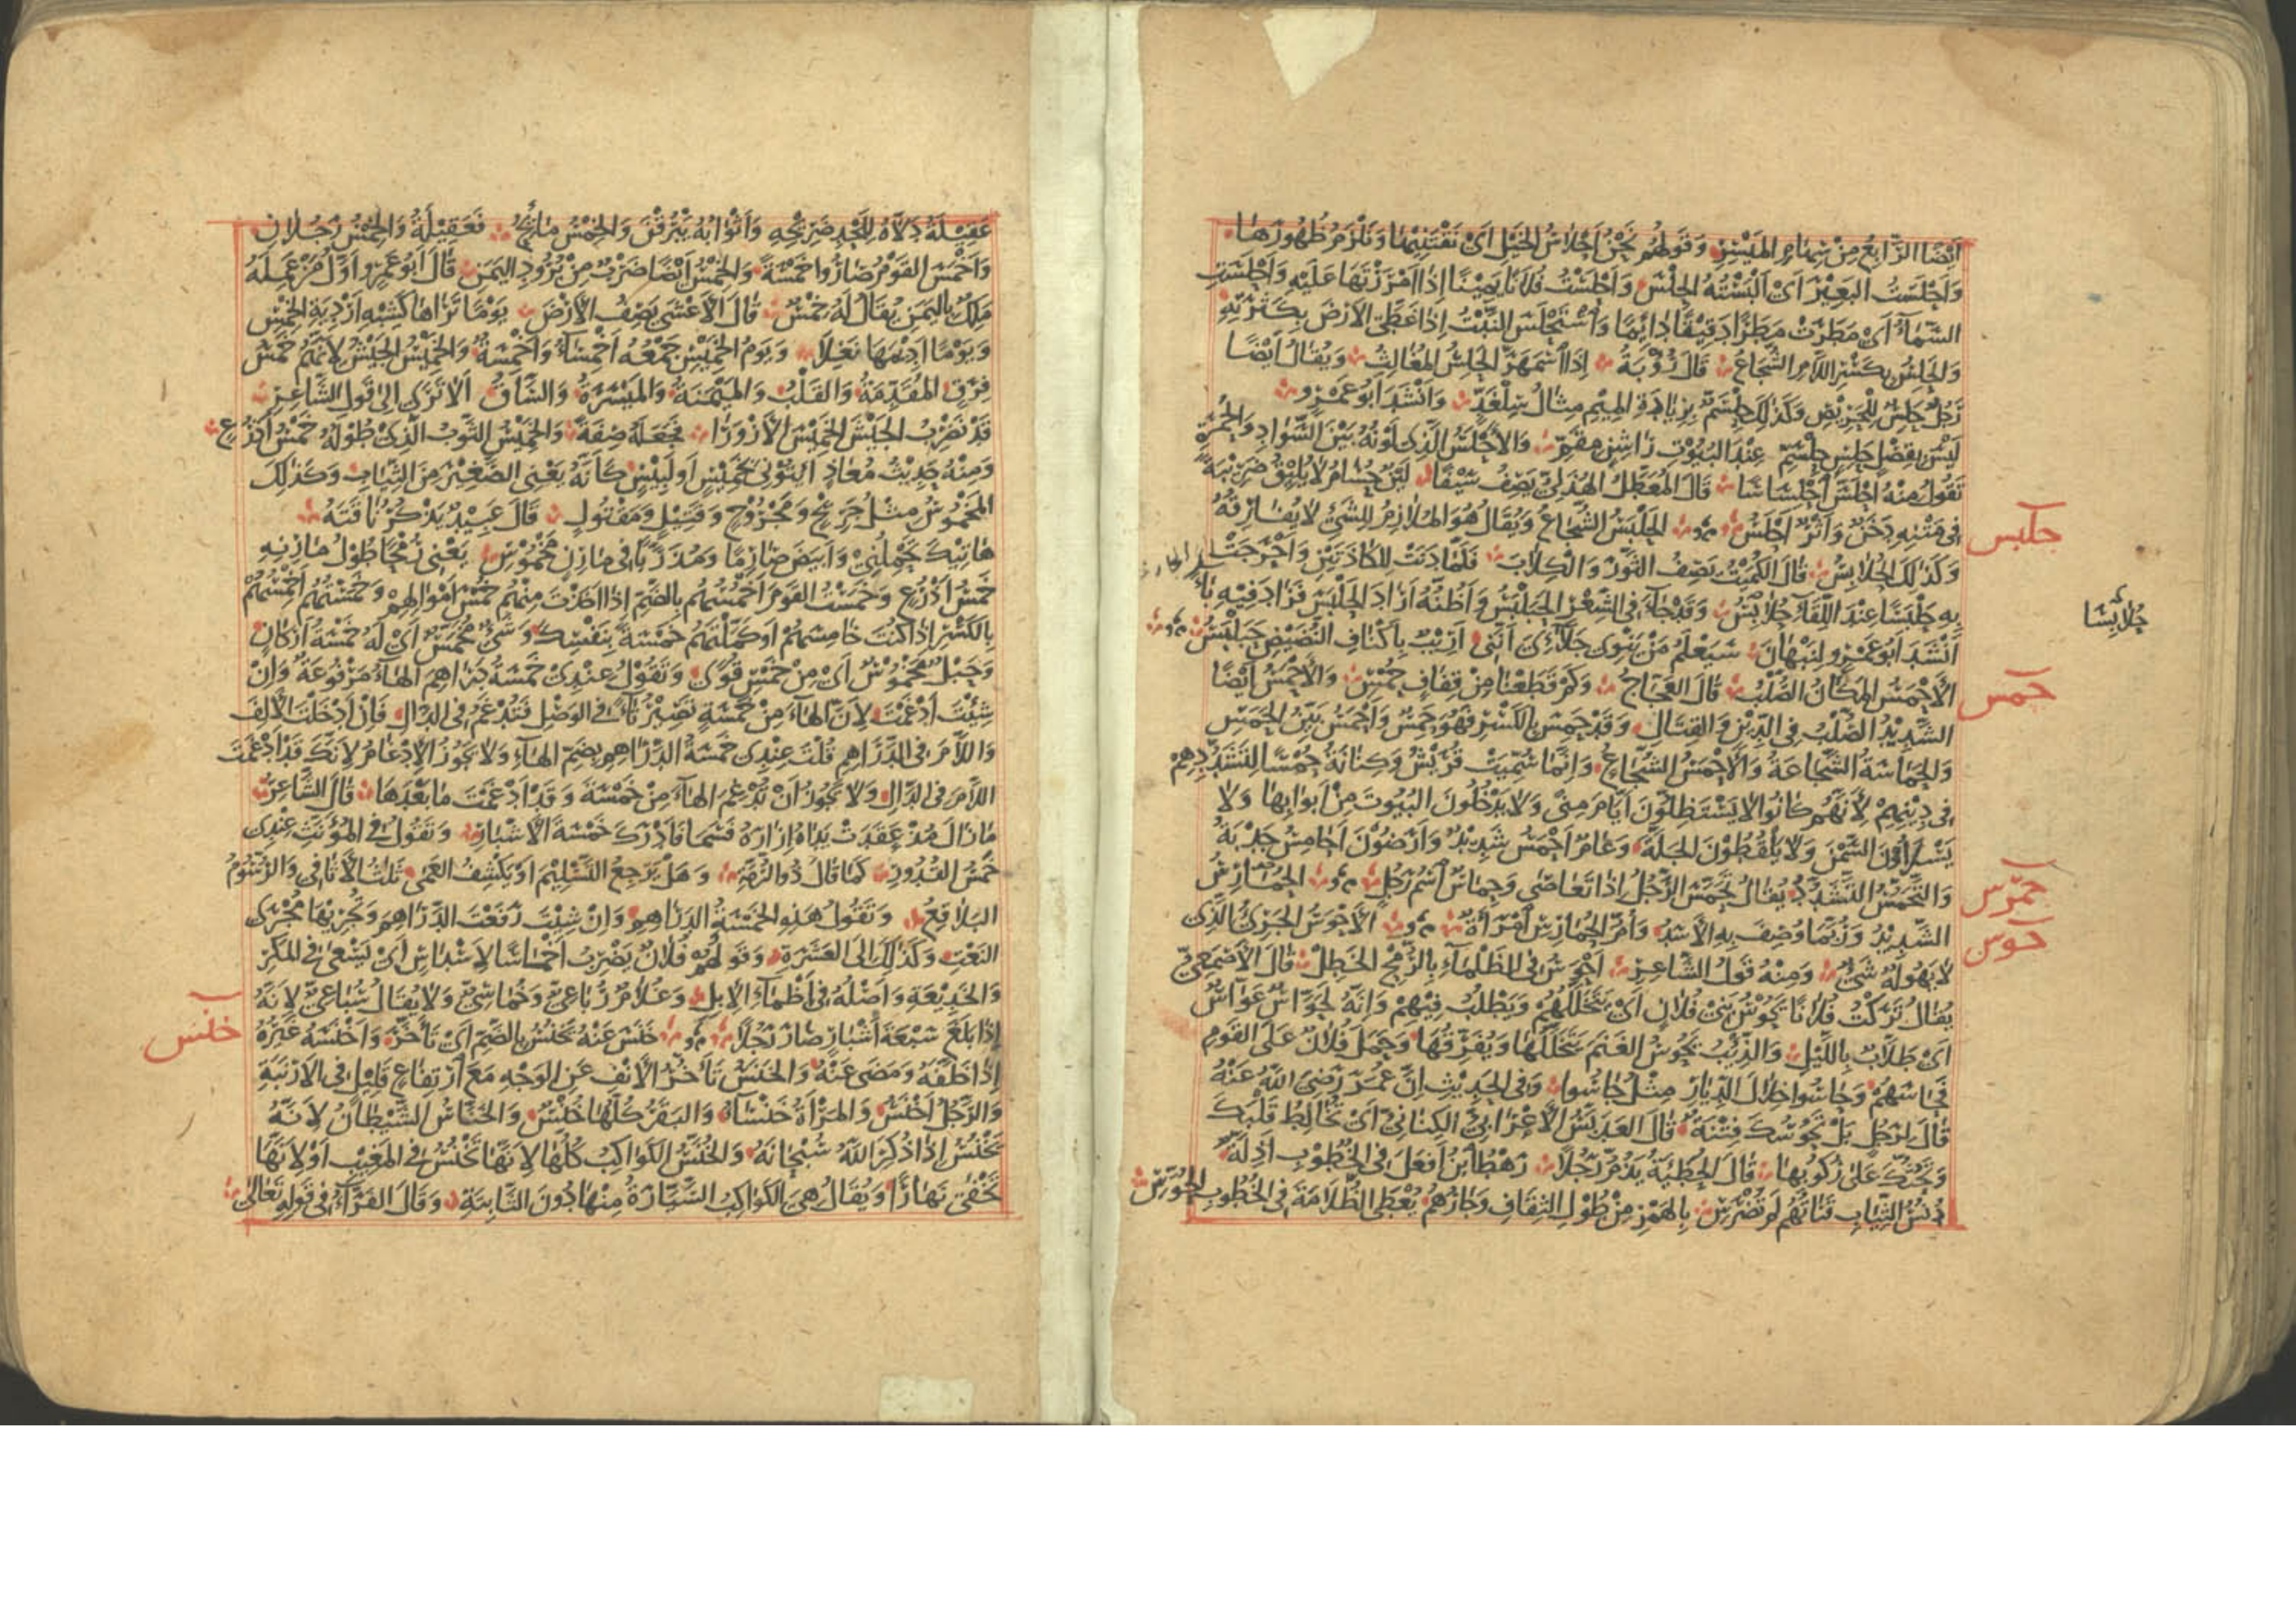 اَيْضًا الرَّابِعُ مِنْ سِهَامِ المَيْسِرِ وَقَوْلُهُم نَحْنُ اَحْلَاسُ الخَيْلِ اَيْ نَقْتَنِيْهَا وَنَلْزَمُ ظُهُورَهَا
وَاَحْلَسْتُ البَعِيْرَ اَيْ اَلْبَسْتُهُ الحِلْسَ وَاَحْلَسْتُ فُلَانًا يَمِيْنًا اِذَا اَمْرَرْتَهَا عَلَيْهِ وَاَحْلَسَتِ
السَّمَاءُ اَيْ مَطَرَتْ مَطَرًا دَقِيْقًا دَائِمًا وَاسْتَحْلَسَ النَّبْتُ اِذَا غَطَّى الاَرْضَ بِكَثْرَتِهِ
وَالحَلِسُ بِكَسْرِ اللَّامِ الشُّجَاعُ قَالَ رُؤْبَةُ اِذَا اسْمَهَرَّ الحَلِسُ المُغَالِثُ وَيُقَالُ اَيْضًا
رَجُلٌ حَلِسٌ لِلْحَرِيْصِ وَكَذَلِكَ حِلْسَمٌّ بِزِيَادَةِ المِيْمِ مِثَالُ سِلَّغْدٍ وَاَنْشَدَ اَبُو عَمْرٍو
لَيْسَ بِقِصْلٍ حَلِسٍ حِلْسَمِّ عِنْدَ البُيُوْتِ رَاشِنٍ مِقَمِّ وَالاَحْلَسُ الَّذِى لَوْنُهُ بَيْنَ السَّوَادِ وَالحُمْرَةِ
تَقُولُ مِنْهُ اِحْلَسَّ اِحْلِسَاسًا قَالَ المُعَطَّلُ الهُذَلِيُّ يَصِفُ سَيْفًا لَيْنٌ حُسَامٌ لَا يُلِيْقُ ضَرِيْبَةً
فِى مَتْنِهِ دَخَنٌ وَاَثْرٌ اَحْلَسُ الحَلْبَسُ الشُّجَاعُ وَيُقَالُ هُوَ المُلَازِمُ لِلشَّيْءِ لَا يُفَارِقُهُ
حلبس
وَكَذَلِكَ الحُلَابِسُ قَالَ الكُمَيْتُ يَصِفُ الثَّوْرَ وَالكِلَابَ فَلَمَّا دَنَتْ لِلكَاذَتَيْنِ وَاَحْرَجَتْ
بِهِ حَلْبَسًا عِنْدَ اللِّقَاءِ حُلَابِسَا وَقَدْ جَاءَ فِى الشِّعْرِ الحَبَلْبَسُ وَاَظُنُّهُ اَرَادَ الحَلْبَسَ فَزَادَ فِيْهِ بَاءً
حُلَابِسَا
اَنْشَدَ اَبُو عَمْرٍو لِنَبْهَانَ سَيَعْلَمُ مَنْ يَنْوِى جَلَاءِىَ اَنَّنِى اَرِيْبٌ بِاَكْنَافِ النُّضَيْضِ حَبَلْبَسُ
الاَحْمَسُ المَكَانُ الصُّلْبُ قَالَ العَجَّاجُ وَكَمْ قَطَعْنَا مِنْ قِفَافٍ حُمْسِ وَالاَحْمَسُ اَيْضًا
حمس
الشَّدِيْدُ الصُّلْبُ فِى الدِّيْنِ وَالقِتَالِ وَقَدْ حَمِسَ بِالكَسْرِ فَهُوَ حَمِسٌ وَاَحْمَسُ بَيِّنُ الحَمَسِ
وَالحَمَاسَةُ الشَّجَاعَةُ وَالاَحْمَسُ الشُّجَاعُ وَاِنَّمَا سُمِّيَتْ قُرَيْشٌ وَكِنَانَةُ حُمْسًا لِتَشَدُّدِهِمْ
فِى دِيْنِهِمْ لِاَنَّهُم كَانُوا لَا يَسْتَظِلُّوْنَ اَيَّامَ مِنًى وَلَا يَدْخُلُونَ البُيُوتَ مِنْ اَبْوَابِهَا وَلَا
يَسْلَأُوْنَ السَّمْنَ وَلَا يَلْقُطُوْنَ الجَلَّةَ وَعَامٌ اَحْمَسُ شَدِيْدٌ وَاَرَضُوْنَ اَحَامِسُ جَدْبَةٌ
وَالتَّحَمُّسُ التَّشَدُّدُ يُقَالُ تَحَمَّسَ الرَّجُلُ اِذَا تَعَاصَى وَحِمَاسٌ اسْمُ رَجُلٍ الحُمَارِسُ
حمرس
الشَّدِيْدُ وَرُبَّمَا وُصِفَ بِهِ الاَسَدُ وَاُمُّ الحُمَارِسِ امْرَأَةٌ الاَحْوَسُ الجَرِئُ الَّذِى
حوس
لَا يَهُولُهُ شَيْءٌ وَمِنْهُ قَوْلُ الشَّاعِرِ اَحْوَسُ فِى الظَّلْمَاءِ بِالرُّمْحِ الخَطِلْ قَالَ الاَصْمَعِيُّ
يُقَالُ تَرَكْتُ فُلَانًا يَحُوْسُ بَنِىْ فُلَانٍ اَيْ يَتَخَلَّلُهُمْ وَيَطْلُبُ فِيْهِمْ وَاِنَّهُ لَحَوَّاسٌ عَوَّاسٌ
اَيْ طَلَّابٌ بِاللَّيْلِ وَالذِّئْبُ يَحُوسُ الغَنَمَ يَتَخَلَّلُهَا وَيُفَرِّقُهَا وَحَمَلَ فُلَانٌ عَلَى القَوْمِ
فَحَاسَهُمْ وَحَاسُوا خِلَالَ الدِّيَارِ مِثْلُ جَاسُوا وَفِى الحَدِيْثِ اِنَّ عُمَرَ رَضِيَ اللّٰهُ عَنْهُ
قَالَ لِرَجُلٍ بَلْ تَحُوسُكَ فِتْنَةٌ قَالَ العَدَبَّسُ الاَعْرَابِيُّ الكِنَانِيُّ اَيْ تُخَالِطُ قَلْبَكَ
وَتَحُثُّكَ عَلَى رُكُوبِهَا قَالَ الحُطَيْئَةُ يَذُمُّ رَجُلًا رَهْطُ ابْنِ اَفْعَلَ فِى الخُطُوْبِ اَذِلَّةٌ
دُنُسُ الثِّيَابِ قَنَاتُهُم لَمْ تُضْرَسِ بِالهَمْزِ مِنْ طُوْلِ الثِّقَافِ وَجَارُهُم يُعْطَى الظُّلَامَةَ فِى الخُطُوْبِ الحُوَّسِ
عَقِيْلَةُ دَلَّاهُ لِلَحْدِ ضَرِيْحِهِ وَاَثْوَابُهُ يَبْرُقْنَ وَالخِمْسُ مَائِحُ فَعَقِيْلَةُ وَالخِمْسُ رَجُلَانِ
وَاَخْمَسَ القَوْمُ صَارُوا خَمْسَةً وَالخِمْسُ اَيْضًا ضَرْبٌ مِنْ بُرُودِ اليَمَنِ قَالَ اَبُو عَمْرٍو اَوَّلُ مَنْ عَمِلَهُ
مَلِكٌ بِاليَمَنِ يُقَالُ لَهُ خِمْسٌ قَالَ الاَعْشَى يَصِفُ الاَرْضَ يَوْمًا تَرَاهَا كَشِبْهِ اَرْدِيَةِ الخِمْسِ
وَيَوْمًا اَدِيْمَهَا نَغِلَا وَيَوْمُ الخَمِيْسِ جَمْعُهُ اَخْمِسَاءُ وَاَخْمِسَةٌ وَالخَمِيْسُ الجَيْشُ لِاَنَّهُمْ خَمْسُ
فِرَقٍ المُقَدِّمَةُ وَالقَلْبُ وَالمَيْمَنَةُ وَالمَيْسَرَةُ وَالسَّاقُ اَلَا تَرَى اِلَى قَوْلِ الشَّاعِرِ
قَدْ نَضْرِبُ الجَيْشَ الخَمِيْسَ الاَزْوَرَا فَجَعَلَهُ صِفَةً وَالخَمِيْسُ الثَّوْبُ الَّذِىْ طُوْلُهُ خَمْسُ اَذْرُعٍ
وَمِنْهُ حَدِيْثُ مُعَاذٍ ايْتُوْنِى بِخَمِيْسٍ اَو لَبِيْسٍ كَاَنَّهُ يَعْنِى الصَّغِيْرَ مِنَ الثِّيَابِ وَكَذَلِكَ
المَخْمُوْسُ مِثْلُ جَرِيْحٍ وَمَجْرُوْحٍ وَقَتِيْلٍ وَمَقْتُولٍ قَالَ عَبِيْدٌ يَذْكُرُ نَاقَتَهُ
هَاتِيْكَ تَحْمِلُنِيْ وَاَبْيَضَ صَارِمًا وَمُذَرَّبًا فِى مَارِنٍ مَخْمُوْسِ يَعْنِى رُمْحًا طُوْلُ مَارِنِهِ
خَمْسُ اَذْرُعٍ وَخَمَسْتُ القَوْمَ اَخْمُسُهُم بِالضَّمِّ اِذَا اَخَذْتَ مِنْهُمْ خُمْسَ اَمْوَالِهِمْ وَخَمَسْتُهُمْ اَخْمِسُهُمْ
بِالكَسْرِ اِذَا كُنْتَ خَامِسَهُمْ اَوْ كَمَّلْتَهُمْ خَمْسَةً بِنَفْسِكَ وَشَيْءٌ مُخَمَّسٌ اَيْ لَهُ خَمْسَةُ اَرْكَانٍ
وَحَبْلٌ مَخْمُوْسٌ اَيْ مِنْ خَمْسِ قُوًى وَتَقُوْلُ عِنْدِىْ خَمْسَةُ دَرَاهِمَ الهَاءُ مَرْفُوعَةٌ وَاِنْ
شِئْتَ اَدْغَمْتَ لِاَنَّ الهَاءَ مِنْ خَمْسَةٍ تَصِيْرُ تَاءً فِى الوَصْلِ فَتُدْغَمُ فِى الدَّالِ فَاِنْ اَدْخَلْتَ الاَلِفَ
وَاللَّامَ فِى الدَّرَاهِمِ قُلْتَ عِنْدِى خَمْسَةُ الدَّرَاهِمِ بِضَمِّ الهَاءِ وَلَا يَجُوزُ الاِدْغَامُ لِاَنَّكَ قَدْ اَدْغَمْتَ
اللَّامَ فِى الدَّالِ وَلَا يَجُوزُ اَنْ تُدْغِمَ الهَاءَ مِنْ خَمْسَةٍ وَقَدْ اَدْغَمْتَ مَا بَعْدَهَا قَالَ الشَّاعِرُ
مَا زَالَ مُذْ عَقَدَتْ يَدَاهُ اِزَارَهُ فَسَمَا فَاَدْرَكَ خَمْسَةَ الاَشْبَارِ وَتَقُوْلُ فِى المُؤَنَّثِ عِنْدِى
خَمْسُ القُدُورِ كَمَا قَالَ ذُو الرُّمَّةِ وَهَلْ يَرْجِعُ التَّسْلِيْمَ اَوْ يَكْشِفُ العَمَى ثَلَاثُ الاَثَافِى وَالرُّسُوْمُ
البَلَاقِعُ وَتَقُولُ هَذِهِ الخَمْسَةُ الدَّرَاهِمُ وَاِنْ شِئْتَ رَفَعْتَ الدَّرَاهِمَ وَتُجْرِيْهَا مُجْرَى
النَّعْتِ وَكَذَلِكَ اِلَى العَشَرَةِ وَقَوْلُهُم فُلَانٌ يَضْرِبُ اَخْمَاسًا لِاَسْدَاسٍ اَيْ يَسْعَى فِى المَكْرِ
وَالخَدِيْعَةِ وَاَصْلُهُ فِى اَظْمَاءِ الاِبِلِ وَغُلَامٌ رُبَاعِيٌّ وَخُمَاسِيٌّ وَلَا يُقَالُ سُبَاعِيٌّ لِاَنَّهُ
اِذَا بَلَغَ سَبْعَةَ اَشْبَارٍ صَارَ رَجُلًا خَنَسَ عَنْهُ يَخْنُسُ بِالضَّمِّ اَيْ تَأَخَّرَ وَاَخْنَسَهُ غَيْرُهُ
خنس
اِذَا خَلَّفَهُ وَمَضَى عَنْهُ وَالخَنَسُ تَأَخُّرُ الاَنْفِ عَنِ الوَجْهِ مَعَ ارْتِفَاعٍ قَلِيْلٍ فِى الاَرْنَبَةِ
وَالرَّجُلُ اَخْنَسُ وَالمَرْأَةُ خَنْسَاءُ وَالبَقَرُ كُلُّهَا خُنْسٌ وَالخَنَّاسُ الشَّيْطَانُ لِاَنَّهُ
يَخْنُسُ اِذَا ذُكِرَ اللّٰهُ سُبْحَانَهُ وَالخُنَّسُ الكَوَاكِبُ كُلُّهَا لِاَنَّهَا تَخْنُسُ فِى المَغِيْبِ اَوْ لِاَنَّهَا
تَخْفَى نَهَارًا وَيُقَالُ هِيَ الكَوَاكِبُ السَّيَّارَةُ مِنْهَا دُونَ الثَّابِتَةِ وَقَالَ الفَرَّاءُ فِى قَوْلِهِ تَعَالَى